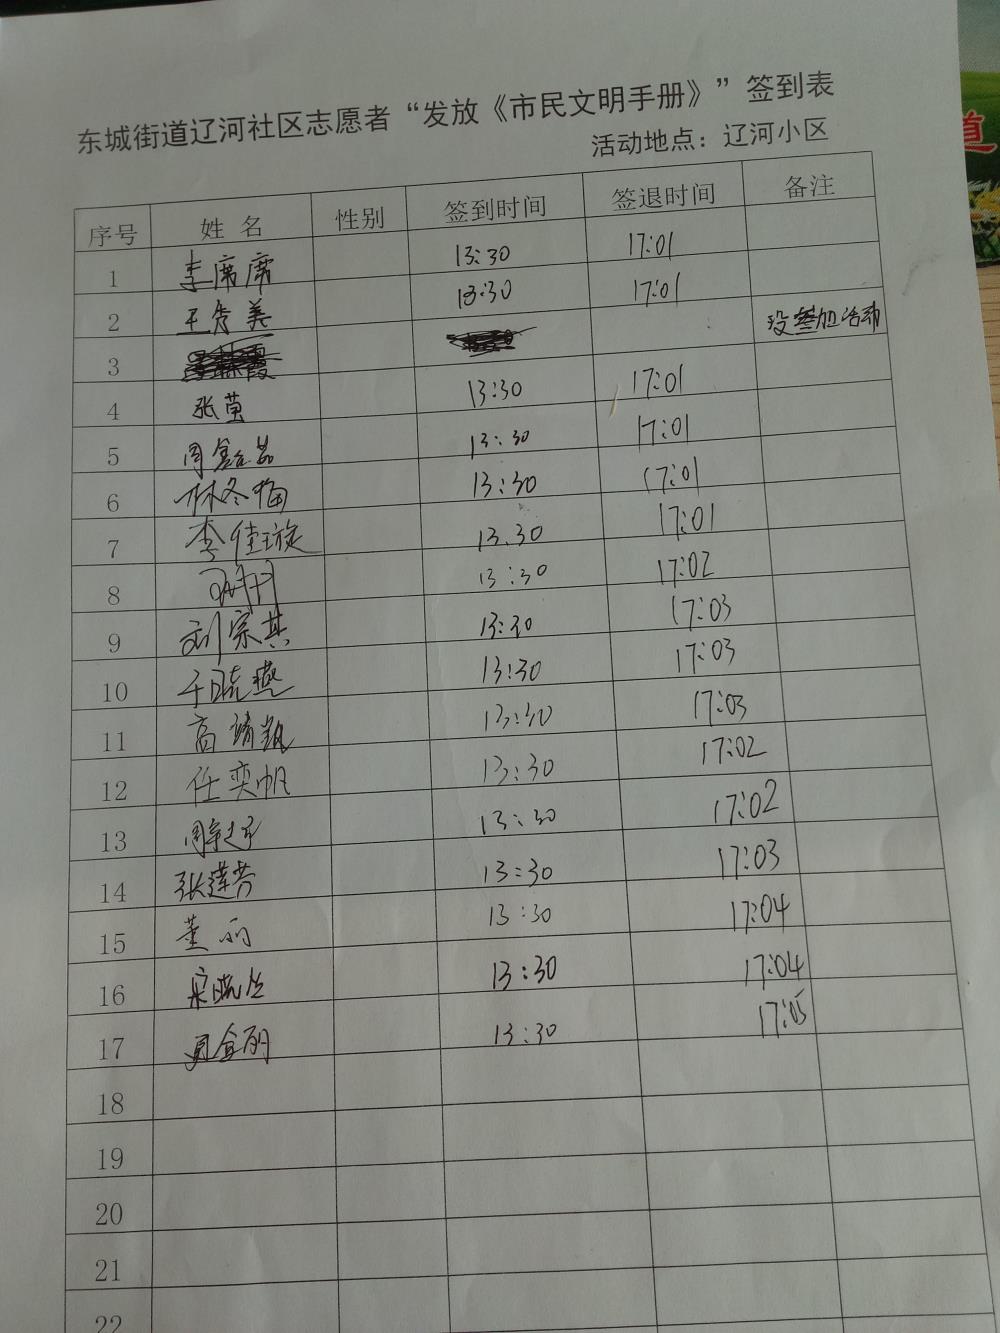 东城街道辽河社区志愿者“发放《市民文明手册》”签到表
活动地点：辽河小区
序号 姓 名 性别 签到时间 签退时间 备注
1 李席席 13:30 17:01
2 王秀美 13:30 17:01
3 霞 没参加活动
4 张萤 13:30 17:01
5 周鑫磊 13:30 17:01
6 林冬梅 13:30 17:01
7 李佳璇 13.30 17:01
8 13:30 17:02
9 刘宗其 13:30 17:03
10 于晓燕 13:30 17:03
11 高靖凯 13:30 17:03
12 任奕帆 13:30 17:02
13 周 13:30 17:02
14 张莲芳 13:30 17:03
15 董丽 13:30 17:04
16 宋晓丝 13:30 17:04
17 夏金丽 13:30 17:05
18
19
20
21
22
道